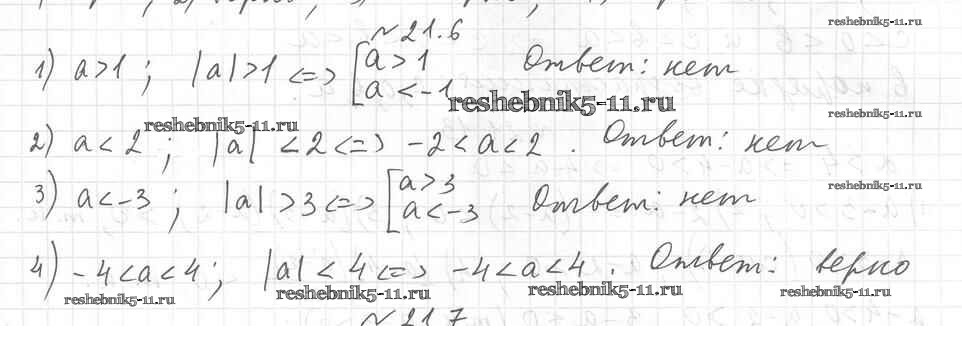 reshebnik5-11.ru
№ 21.6
1) a>1 ; |a|>1 <=> [a>1 Ответ: нет
a<-1
reshebnik5-11.ru
reshebnik5-11.ru
2) a<2 ; |a| <2 <=> -2<a<2 . Ответ: нет
reshebnik5-11.ru
3) a<-3 ; |a|>3 <=> [a>3 Ответ: нет
a<-3
4) -4<a<4 ; |a|<4 <=> -4<a<4 . Ответ: верно
reshebnik5-11.ru reshebnik5-11.ru reshebnik5-11.ru reshebnik5-11.ru
№ 21.7